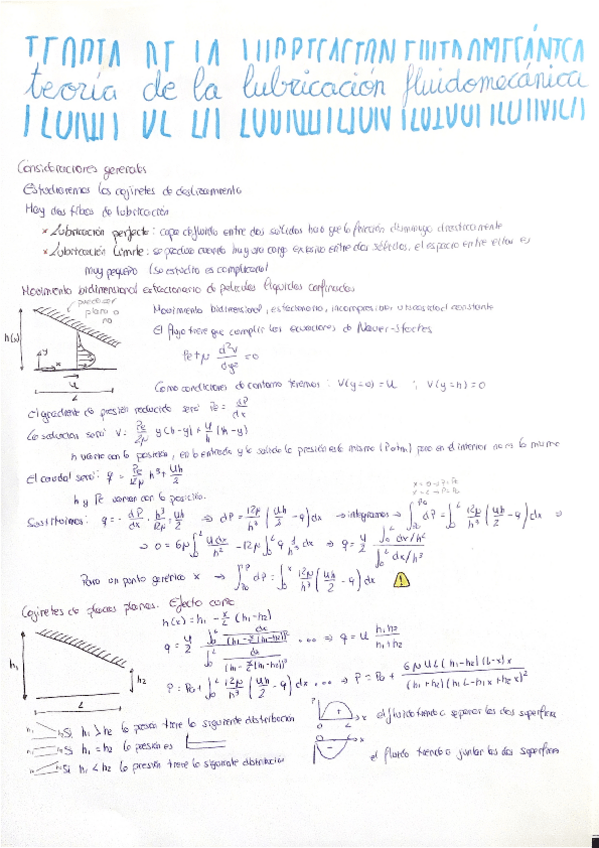 teoría de la lubricación fluidomecánica
Consideraciones generales
Estudiaremos los cojinetes de deslizamiento
Hay dos tipos de lubricación
* Lubricación perfecta: capa de fluido entre dos sólidos hace que la fricción disminuya drásticamente
* Lubricación Límite: se produce cuando hay una carga excesiva entre dos sólidos, el espacio entre ellos es
muy pequeño (su estudio es complicado)
Movimiento bidimensional estacionario de películas líquidas confinadas
puede ser
plano o
no
h(x)
y
x
U
L
Movimiento bidimensional, estacionario, incompresible, viscosidad constante
El flujo tiene que cumplir las ecuaciones de Navier-Stockes
Pe + μ d²v/dy² = 0
Como condiciones de contorno tenemos: V(y=0) = U ; V(y=h) = 0
El gradiente de presión reducido será Pe = dP/dx
La solución será V = Pe/2μ y(h-y) + U/h (h-y)
h varía con la posición, en la entrada y la salida la presión es la misma (Patm) pero en el interior no es la misma
El caudal será: q = Pe/12μ h³ + Uh/2
h y Pe varían con la posición.
x=0 → P=Po
x=L → P=Po
Sustituimos: q = - dP/dx · h³/12μ + Uh/2 ⇒ dP = 12μ/h³ (Uh/2 - q) dx → integramos → ∫ dP = ∫ 12μ/h³ (Uh/2 - q) dx ⇒
⇒ 0 = 6μ ∫ U dx/h² - 12μ ∫ q 1/h³ dx ⇒ q = U/2 ∫ dx/h² / ∫ dx/h³
Para un punto genérico x → ∫ dP = ∫ 12μ/h³ (Uh/2 - q) dx
Cojinetes de placas planas. Efecto cuña
h₁
h₂
L
h(x) = h₁ - x/L (h₁-h₂)
q = U/2 ... ⇒ q = U h₁h₂/(h₁+h₂)
P = Po + ∫ 12μ/h³ (Uh/2 - q) dx ... ⇒ P = Po + 6μUL(h₁-h₂)(L-x)x / (h₁+h₂)(h₁L-h₁x+h₂x)²
Si h₁ > h₂ la presión tiene la siguiente distribución
P
+
0 L x
el fluido tiende a separar las dos superficies
Si h₁ = h₂ la presión es
Si h₁ < h₂ la presión tiene la siguiente distribución
-
x
el fluido tiende a juntar las dos superficies